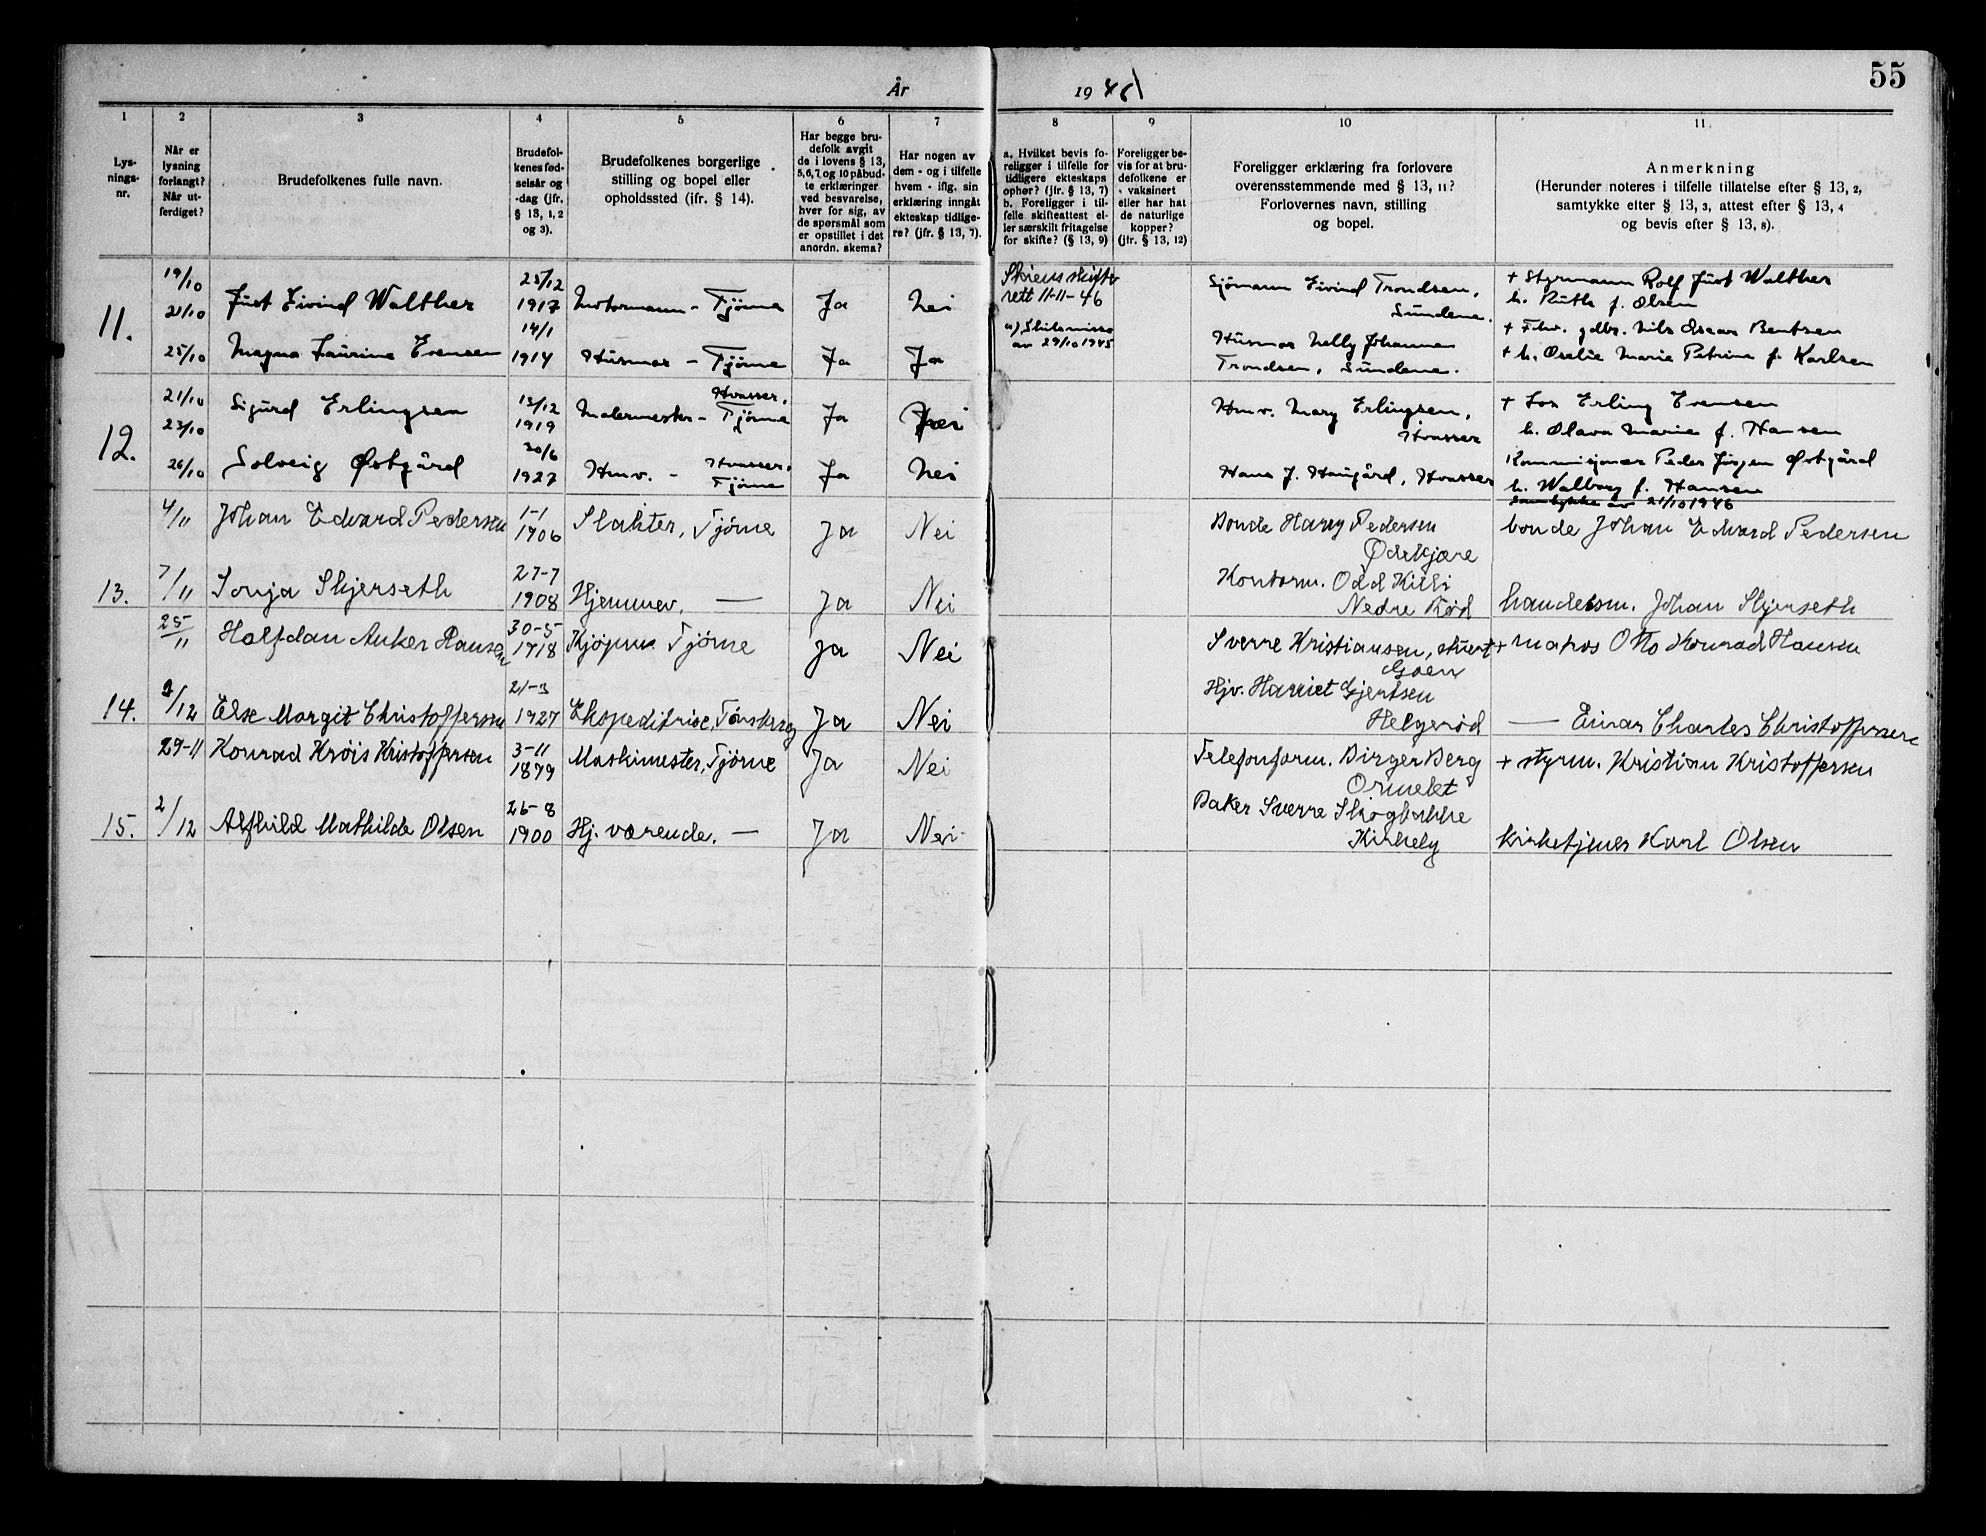 55
År 1946
1 2 3 4 5 6 7 8 9 10 11
Lys-
nings-
nr.
Når er
lysning
forlangt?
Når ut-
ferdiget?
Brudefolkenes fulle navn.
Brudefol-
kenes fød-
selsår og
-dag (jfr.
§ 13, 1, 2
og 3).
Brudefolkenes borgerlige
stilling og bopel eller
opholdssted (jfr. § 14).
Har begge bru-
defolk avgit
de i lovens § 13,
5,6,7, og 10 påbud-
te erklæringer
ved besvarelse,
hver for sig, av
de spørsmål som
er opstillet i det
anordn. skema?
Har nogen av
dem - og i tilfelle
hvem - iflg. sin
erklæring inngåt
ekteskap tidlige-
re? (jfr. § 13, 7).
a. Hvilket bevis fo-
religger i tilfelle for
tidligere ekteskaps
ophør? (jfr. § 13, 7)
b. Foreligger i til-
felle skifteattest el-
ler særskilt fritagelse
for skifte? (§ 13, 9)
Foreligger be-
vis for at bru-
defolkene er
vaksinert
eller har hat
de naturlige
kopper?
(jfr. § 13, 12)
Foreligger erklæring fra forlovere
overensstemmende med § 13, 11?
Forlovernes navn, stilling
og bopel.
Anmerkning
(Herunder noteres i tilfelle tillatelse efter § 13, 2,
samtykke efter § 13, 3, attest efter § 13, 4
og bevis efter § 13, 8).
11.
19/10
21/10
Just Eivind Walther
25/12
1917
Motormann - Tjöme
Ja
Nei
Skiens skifte-
rett 11-11-46
Sjömann Eivind Trondsen,
Sundene.
+ Styrmann Rolf Just Walther
h. Ruth f. Olsen
25/10
Magna Laurine Evensen
14/1
1914
Husmor - Tjöme
Ja
Ja
a) Skilsmisse
av 29/10 1945
Husmor Nelly Johanne
Trondsen, Sundene.
+ Fhv. gdbr. Nils Oscar Bentsen
+ h. Oselie Marie Petrine f. Karlsen
12.
21/10
23/10
Sigurd Erlingsen
13/12
1919
Malermester - Hvasser, Tjöme
Ja
Nei
Hmv. Mary Erlingsen,
Hvasser
+ Los Erling Evensen
h. Olava Marie f. Hansen
26/10
Solveig Østgård
30/6
1927
Hmv. - Hvasser, Tjöme
Ja
Nei
Hans J. Haugård, Hvasser
Kommisjonær Peder Jörgen Østgård
h. Walborg f. Hansen
Samtykke av 21/10 1946
4/11
Johan Edvard Pedersen
1-1
1906
Slakter, Tjöme
Ja
Nei
Bonde Harry Pedersen
Ødekjære
bonde Johan Edvard Pedersen
13.
7/11
Sonja Skjerseth
27-7
1908
Hjemmev. —
Ja
Nei
Kontorm. Odd Kihli
Nedre Röd
handelsm. Johan Skjerseth
25/11
Halfdan Anker Hansen
30-5
1918
Kjöpm. Tjöme
Ja
Nei
Sverre Kristiansen, stuert
Goen
+ matros Otto Konrad Hansen
14.
2/12
Else Margit Christoffersen
21-3
1927
Ekspeditrise, Tönsberg
Ja
Nei
Hjv. Harriet Gjertsen
Helgeröd
— Einar Charles Christoffersen
29-11
Konrad Krøis Kristoffersen
3-11
1879
Maskinmester, Tjöme
Ja
Nei
Telefonform. Birger Berg
Ormelet
+ styrm. Kristian Kristoffersen
15.
2/12
Alfhild Mathilde Olsen
26-8
1900
Hj. værende. —
Ja
Nei
Baker Sverre Skogbakke
Kirkely
kirketjener Karl Olsen